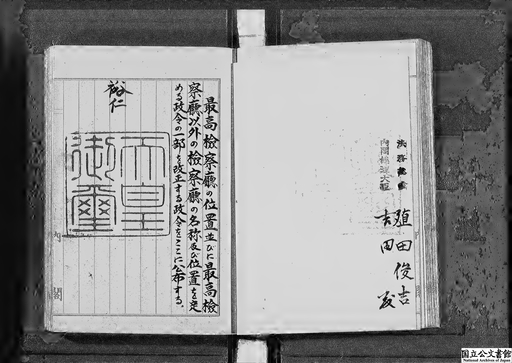 最高檢察廳の位置並びに最高檢
察廳以外の檢察廳の名称及び位置を定
める政令の一部を改正する政令をここに公布する。
裕仁
天皇
御璽
内閣総理大臣
吉田茂
法務総裁
殖田俊吉
国立公文書館
National Archives of Japan